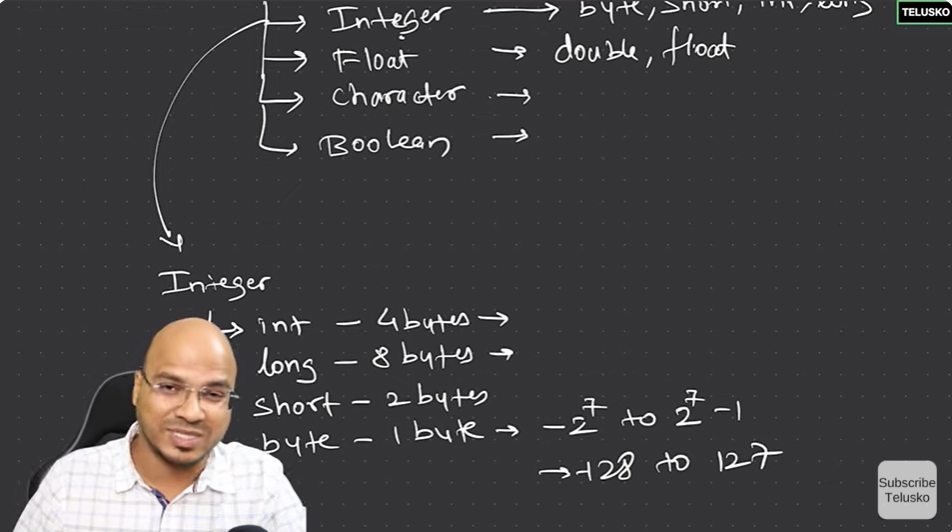 TELUSKO
Integer → byte, short, int, long
Float → double, float
Character →
Boolean →
Integer
→ int – 4 bytes →
long – 8 bytes →
short – 2 bytes
byte – 1 byte → -2⁷ to 2⁷ -1
→ -128 to 127
Subscribe
Telusko